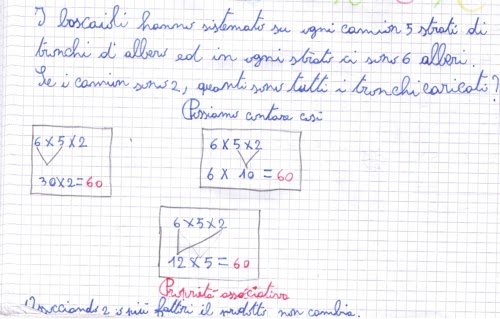 I boscaioli hanno sistemato su ogni camion 5 strati di
tronchi d'albero ed in ogni strato ci sono 6 alberi.
Se i camion sono 2, quanti sono tutti i tronchi caricati?
Possiamo contare così
6 x 5 x 2
30 x 2 = 60
6 x 5 x 2
6 x 10 = 60
6 x 5 x 2
12 x 5 = 60
Proprietà associativa
2 o più fattori il prodotto non cambia.